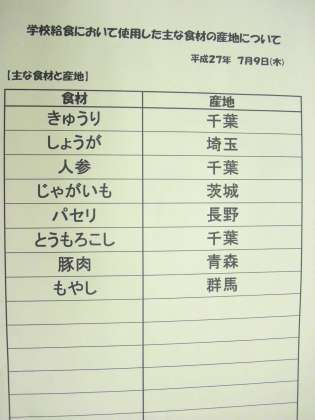 学校給食において使用した主な食材の産地について
平成27年 7月9日(木)
【主な食材と産地】
食材 産地
きゅうり 千葉
しょうが 埼玉
人参 千葉
じゃがいも 茨城
パセリ 長野
とうもろこし 千葉
豚肉 青森
もやし 群馬